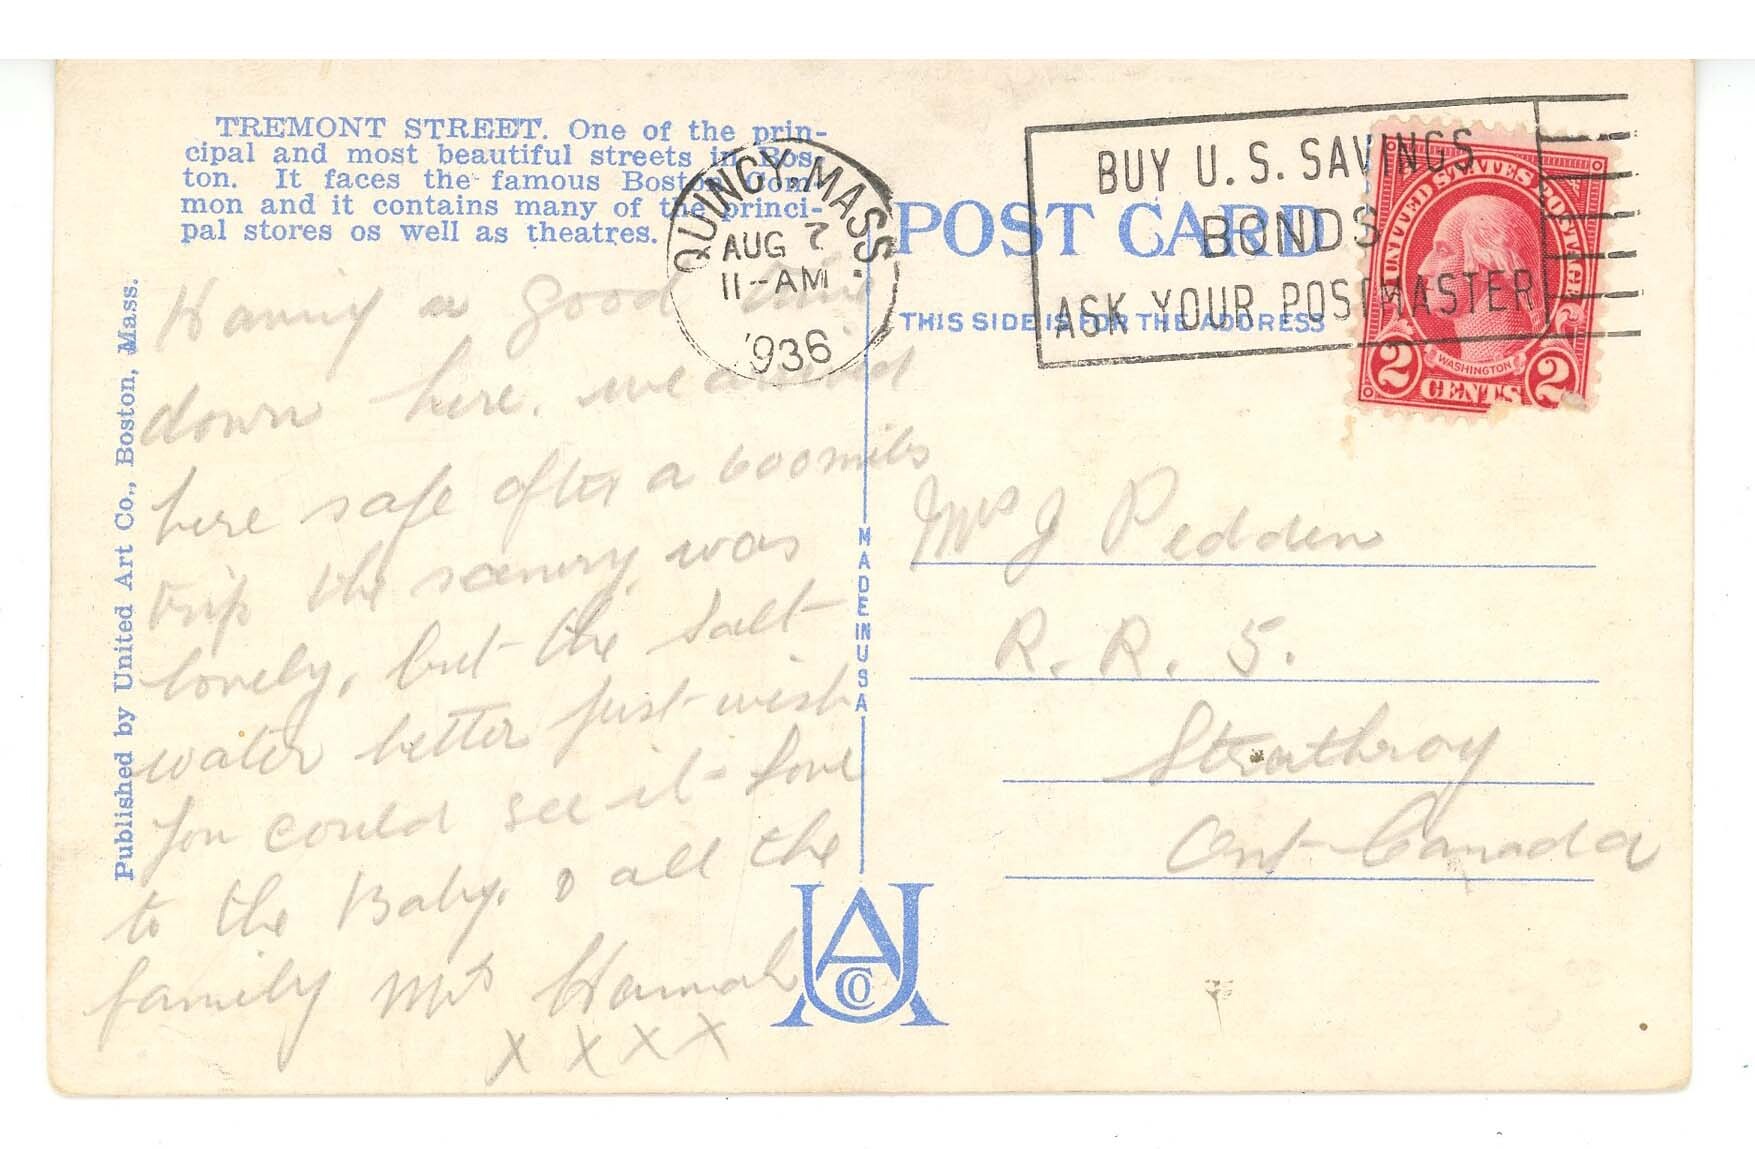 TREMONT STREET. One of the prin-
cipal and most beautiful streets in Bos-
ton. It faces the famous Boston Com-
mon and it contains many of the princi-
pal stores os well as theatres.
Published by United Art Co., Boston, Mass.
Having a good time
down here. we arrived
here safe after a 600 miles
trip the scenery was
lovely, but the salt
water better just wish
you could see it love
to the Baby, & all the
family Mrs Hannah
x x x x
QUINCY, MASS.
AUG 7
11-AM
1936
BUY U.S. SAVINGS
BONDS
ASK YOUR POSTMASTER
UNITED STATES POSTAGE
WASHINGTON
2 CENTS 2
POST CARD
THIS SIDE IS FOR THE ADDRESS
MADE IN USA
Mrs J Pedden
R. R. 5.
Strathroy
Ont Canada
UACO